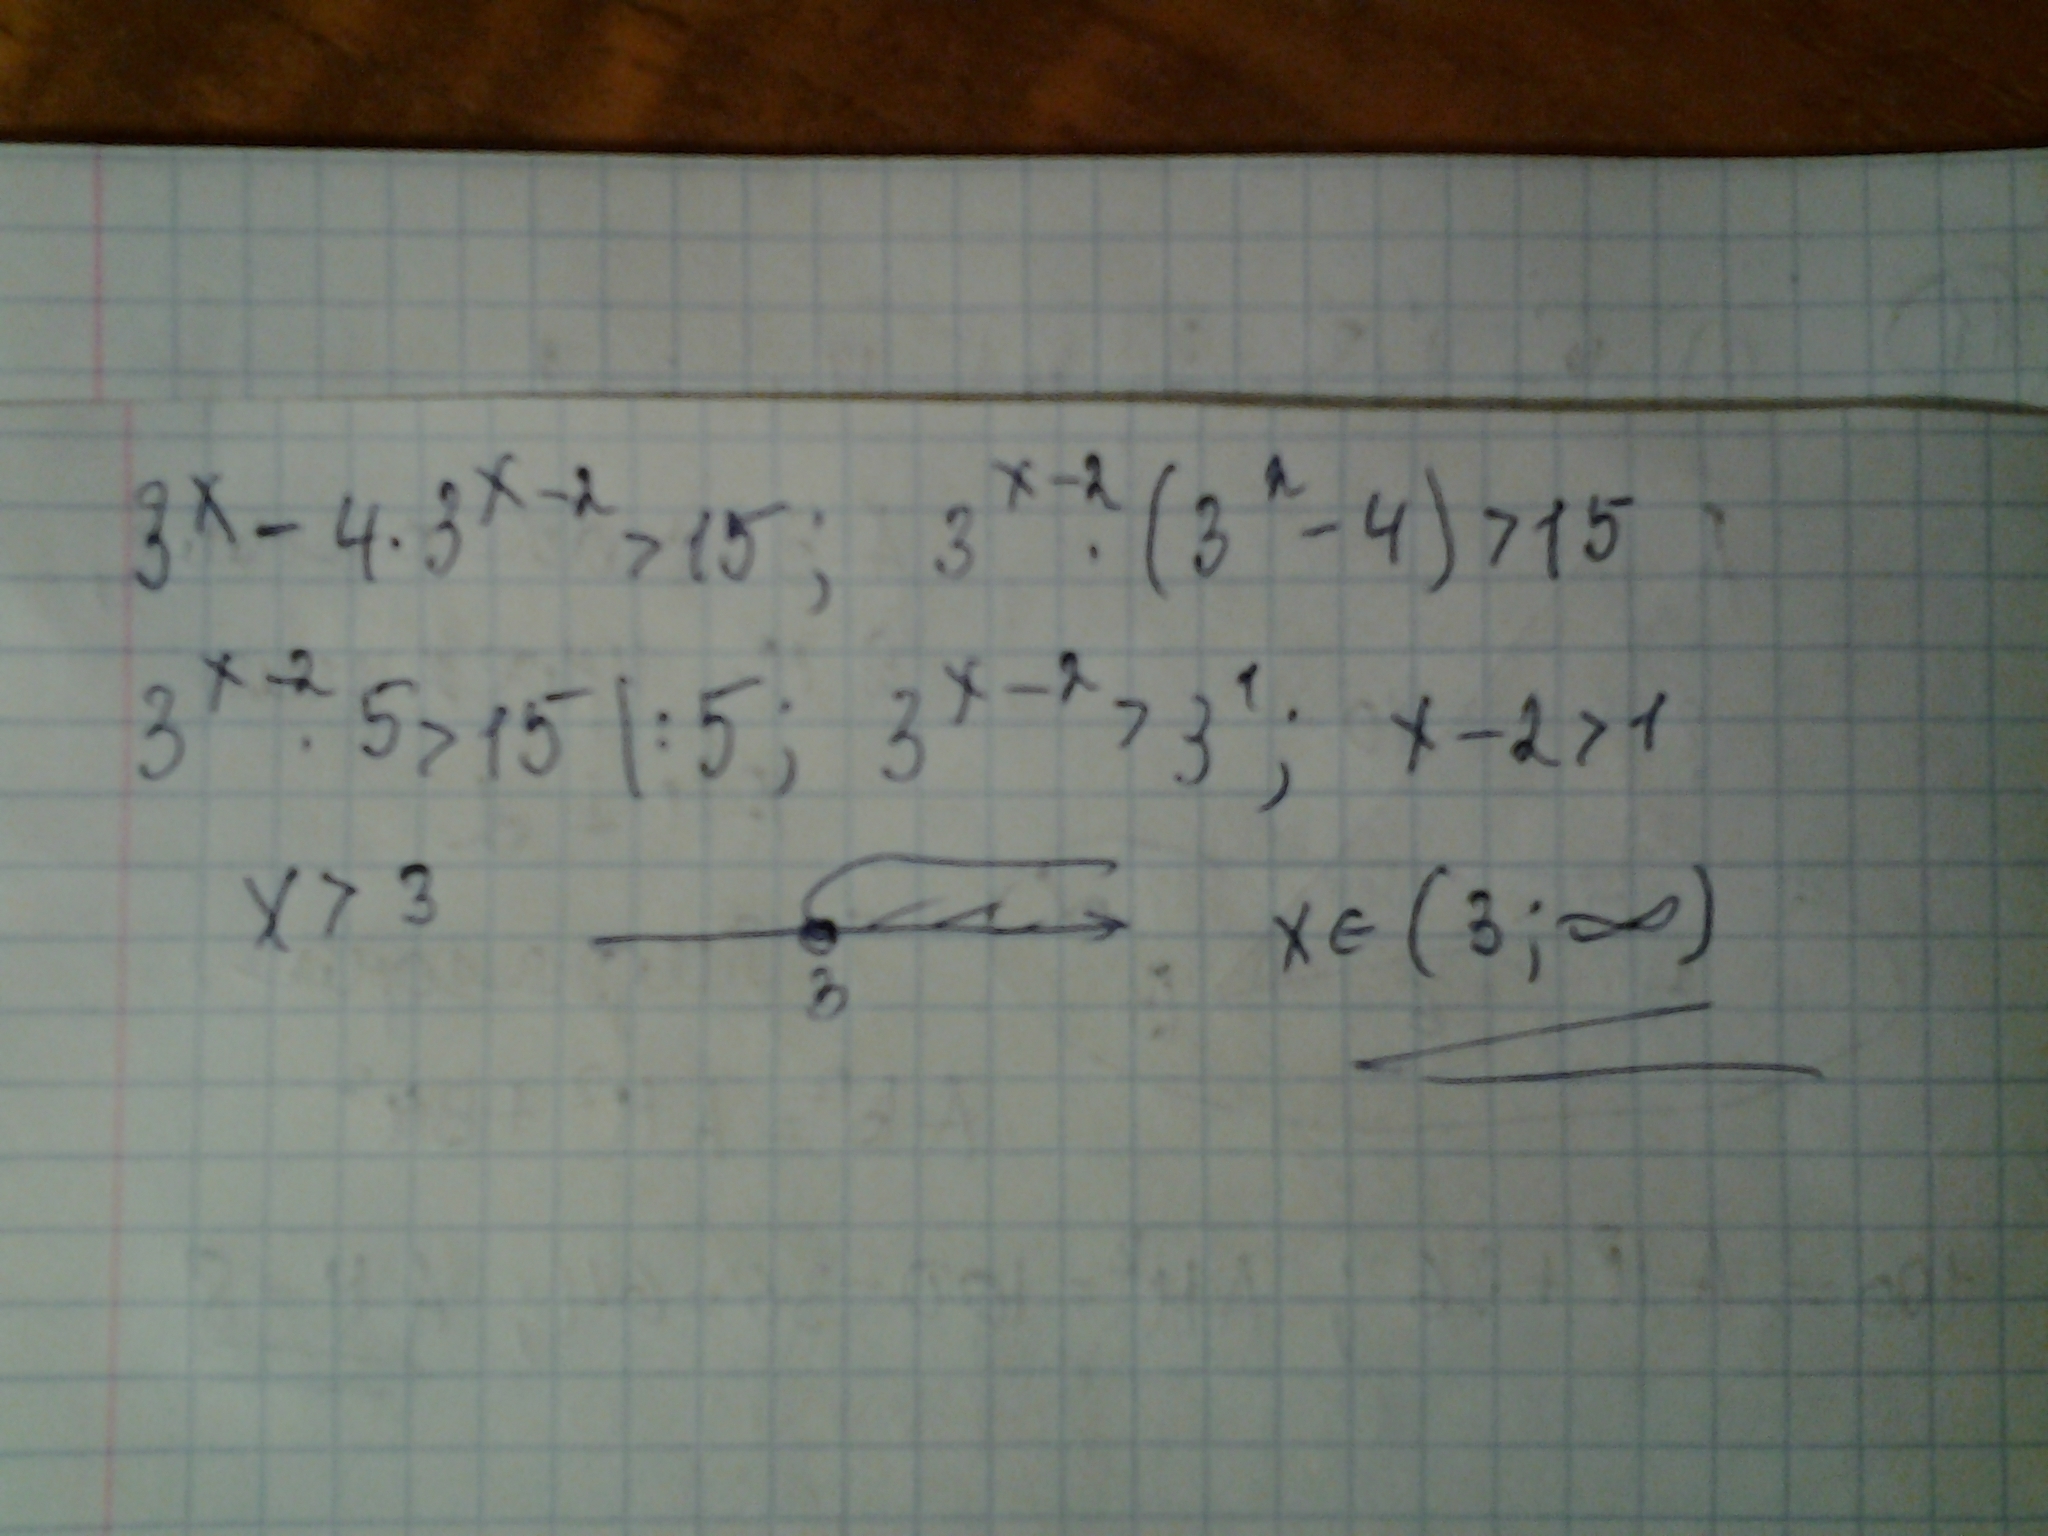 3^x - 4 · 3^(x-2) > 15; 3^(x-2) · (3^2 - 4) > 15
3^(x-2) · 5 > 15 | : 5; 3^(x-2) > 3^1; x - 2 > 1
x > 3 3 x ∈ (3; ∞)